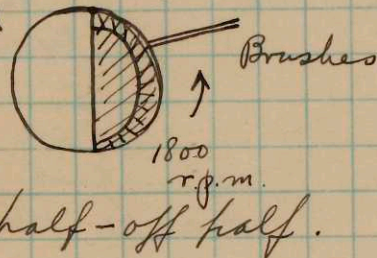 Brushes
1800
r.p.m.
half-off half.